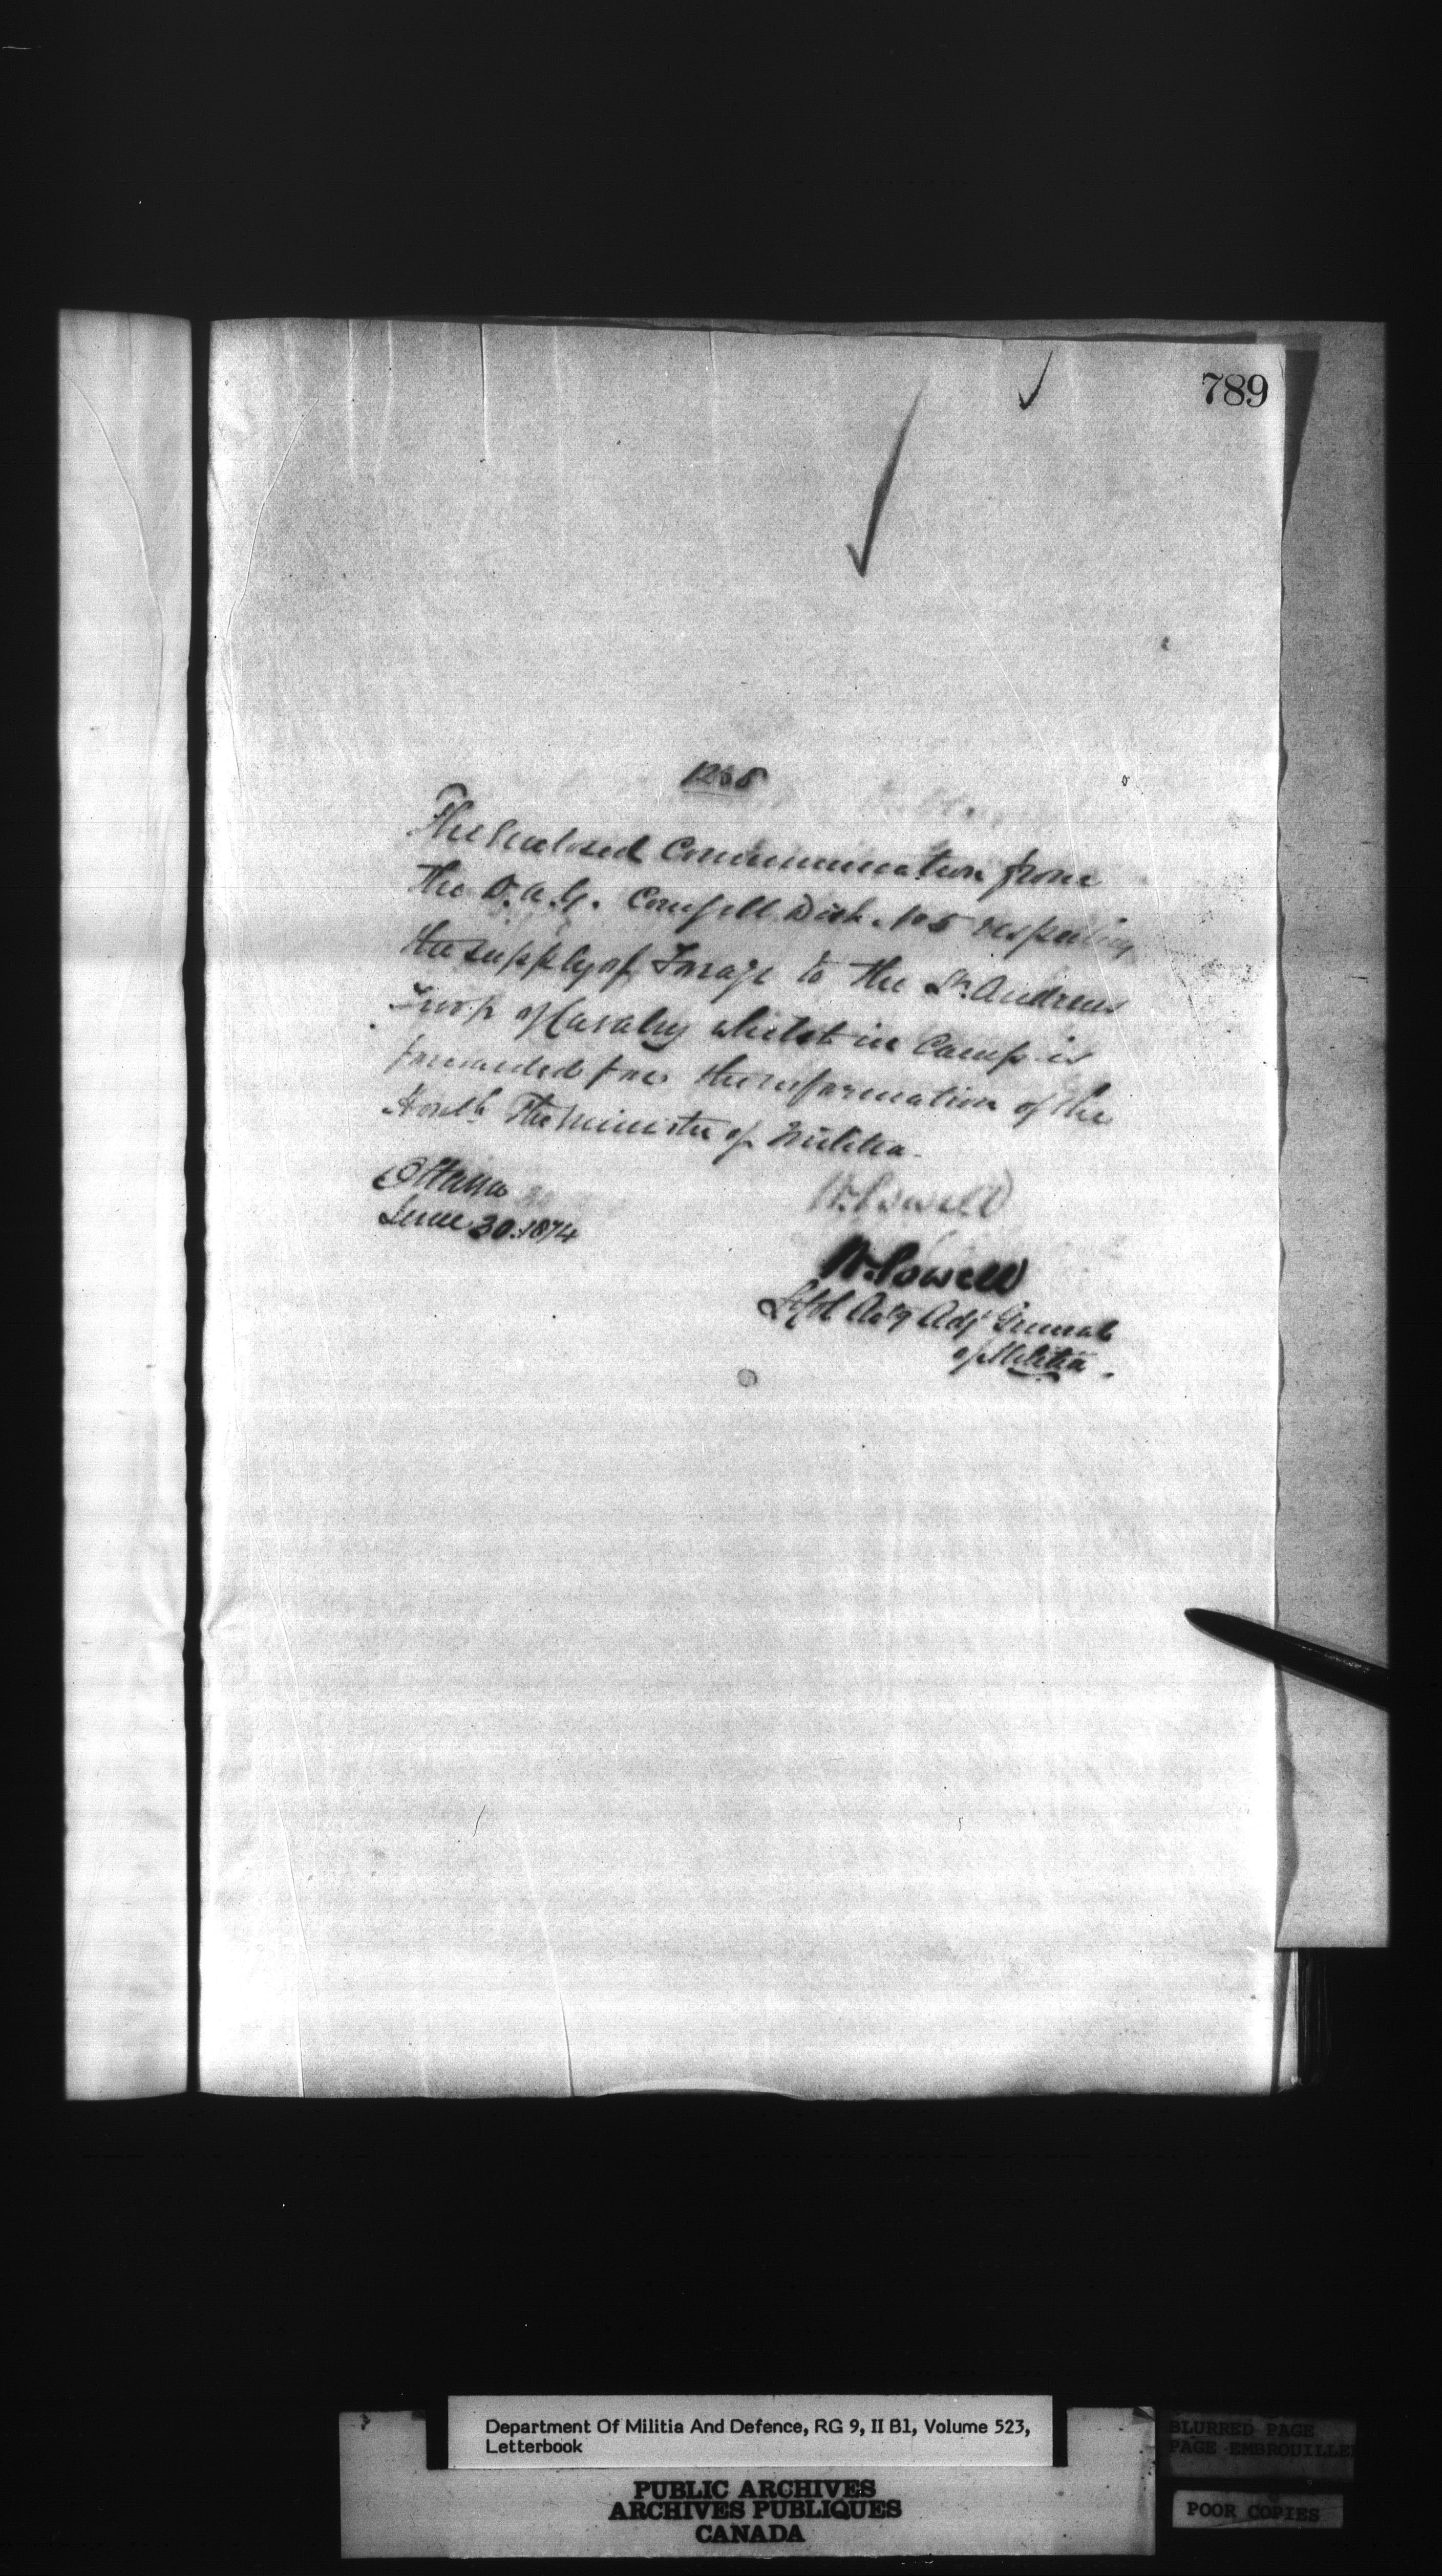 789
The Enclosed Communication from
the D.A.G. Comg Mil. Dist. No 5 respecting
the supply of Forage to the St. Andrews
Troop of Cavalry whilst in Camp is
forwarded for the information of the
Honble The Minister of Militia.
Ottawa
June 30. 1874
W. Powell
W. Powell
Lt Col Act'g Adjt General
of Militia.
Department Of Militia And Defence, RG 9, II B1, Volume 523,
Letterbook
PUBLIC ARCHIVES
ARCHIVES PUBLIQUES
CANADA
BLURRED PAGE
PAGE EMBROUILLEE
POOR COPIES